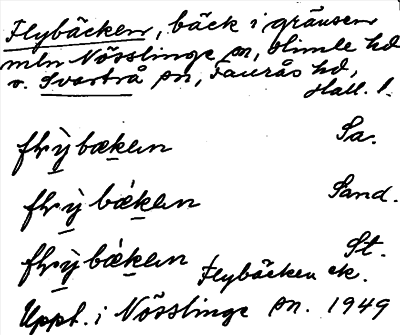 Flybäcken, bäck i gränsen
mln Nösslinge sn, Himle hd
o. Svartrå sn, Faurås hd,
Hall. l.
flỳbækən Sa.
flỳbǽkən Sand.
flỳbǽkən St.
Flybäcken ek.
Uppt. i Nösslinge sn. 1949